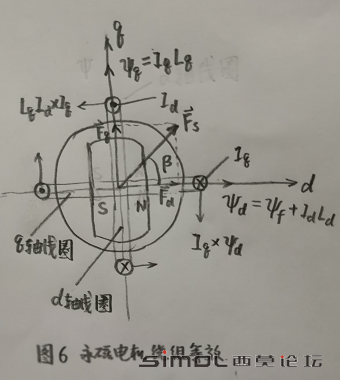 q
Ψq = IqLq
LqId×Iq
Id
Fs
Fq
β
Iq
d
S
N
Fd
Ψd = Ψf + IdLd
Iq×Ψd
q轴线圈
d轴线圈
图6 永磁电机绕组等效
SIMOL西莫论坛